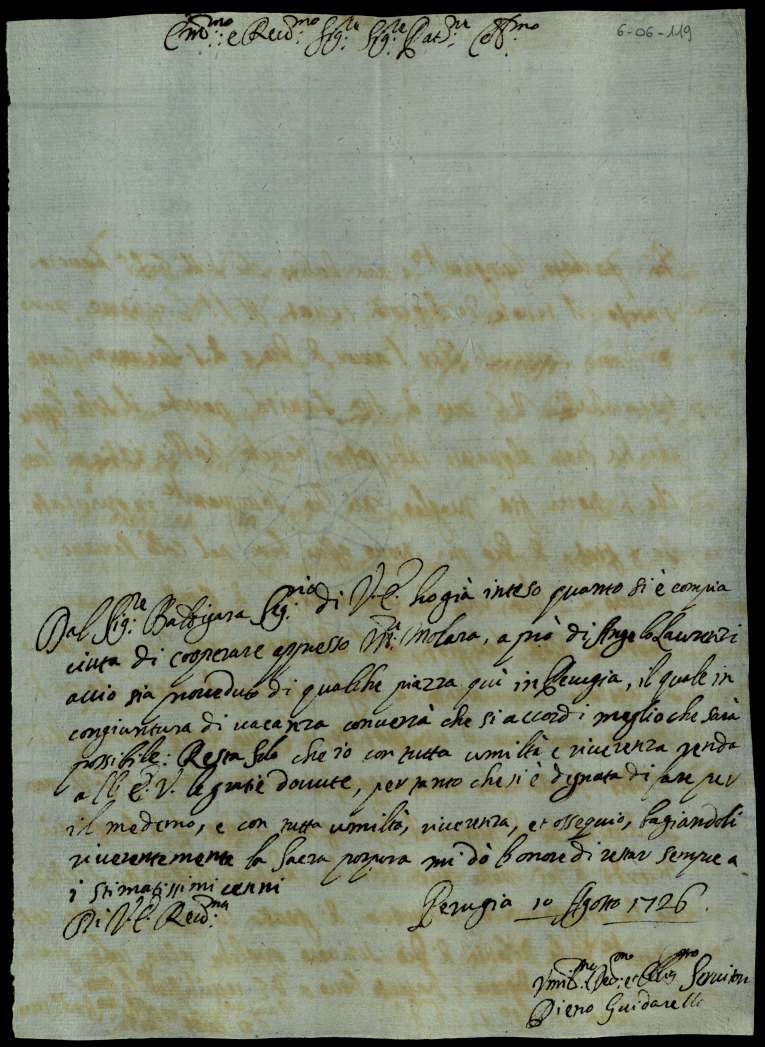 Em.mo e Reu.mo Sig.re Sig.re Pad.ne Col.mo
6-06-119
Dal Sig.re Battigara Seg.rio di V.E. ho già inteso quanto si è compia
ciuta di cooperare appresso M.r Molara, a prò di Angelo Laurenzi
acciò sia proueduto di qualche piazza quì in Perugia, il quale in
congiuntura di uacanza conuerrà che si accordi meglio che sarà
possibile: Resta solo che io con tutta umiltà e riuerenza renda
all' E.V. le gratie douute, per tanto che si è degnata di fare per
il medemo, e con tutta umiltà, riuerenza, et ossequio, bagiandoli
riuerentemente la Sacra porpora mi dò l'onore di restar sempre a
i stimatissimi cenni
Di V.E. Reu.ma
Perugia 10 Agosto 1726.
Vmil.mo Deu.mo et Oblig.mo Seruitore
Piero Guidarelli